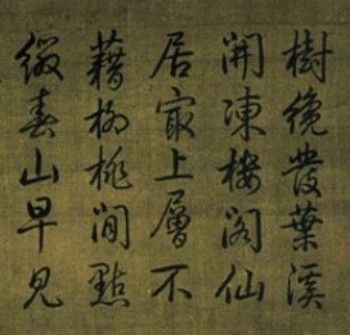 樹纔發葉溪
開凍樓閣仙
居最上層不
藉柳桃閒點
綴春山早見